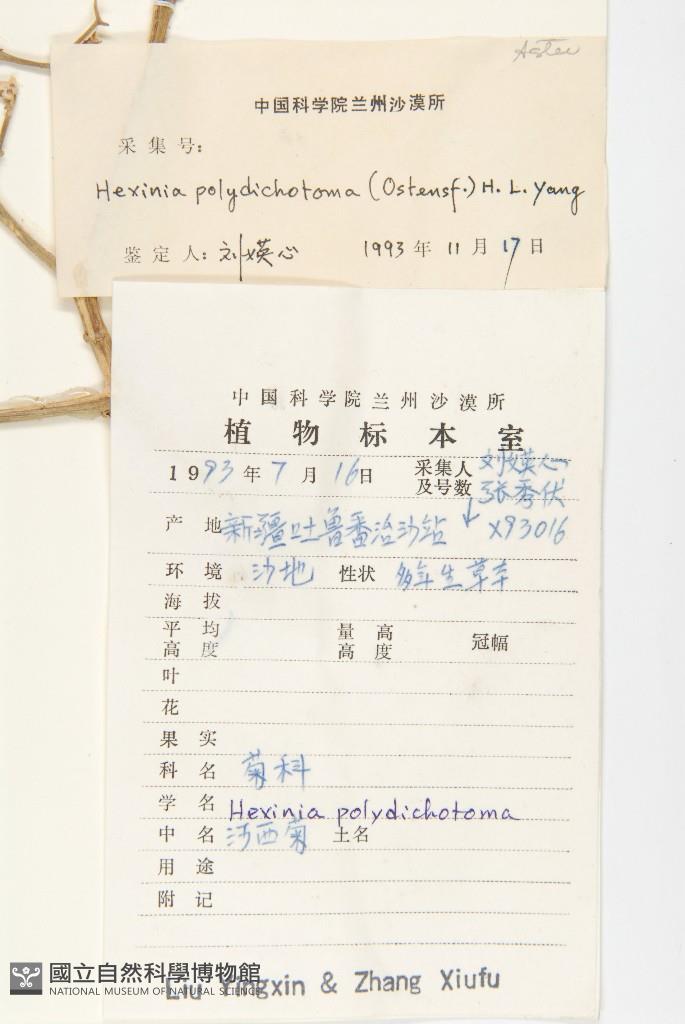 Aster
中国科学院兰州沙漠所
采集号:
Hexinia polydichotoma (Ostensf.) H. L. Yang
鉴定人: 刘媖心 1993年11月17日
中国科学院兰州沙漠所
植物标本室
1993年7月16日 采集人及号数 刘媖心 张秀伏
产地 新疆吐鲁番治沙站 X93016
环境 沙地 性状 多年生草本
海拔
平均高度 量高高度 冠幅
叶
花
果实
科名 菊科
学名 Hexinia polydichotoma
中名 河西菊 土名
用途
附记
Liu Yingxin & Zhang Xiufu
國立自然科學博物館
NATIONAL MUSEUM OF NATURAL SCIENCE